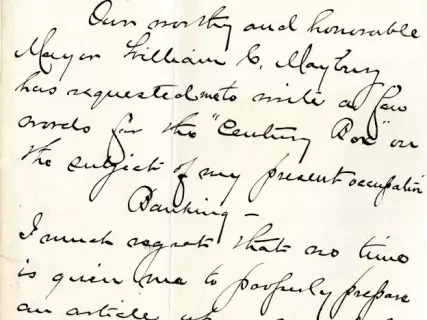 Our worthy and honorable
Mayor William C. Maybury
has requested me to write a few
words for the "Century Box" on
the subject of my present occupation
Banking -
I much regret that no time
is given me to properly prepare
an article